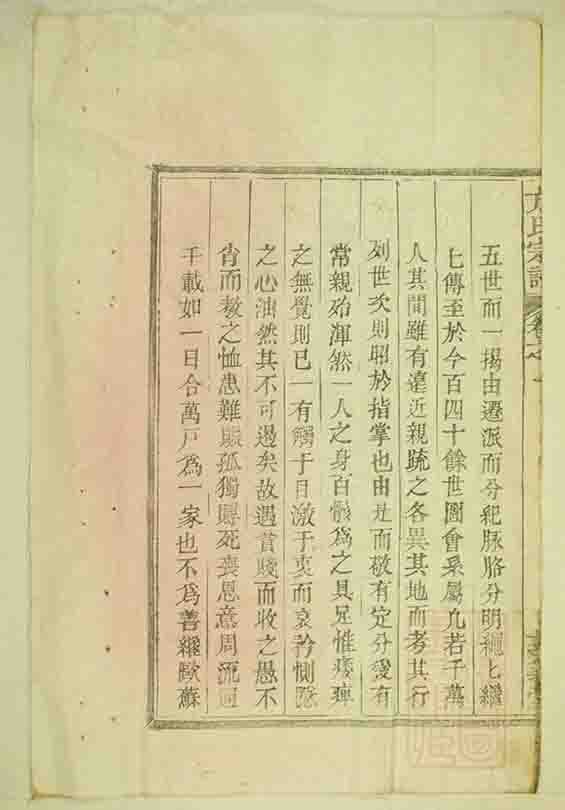 方氏宗譜
五世而一揚由遷派而分紀脉胳分明繩七繼
七傳至於今百四十餘世圖會系屬九若干萬
人其間雖有遠近親䟽之各異其地而考其行
列世次則昭於指掌也由是而敬有定分愛有
常親殆渾然一人之身百骸爲之具足惟痿痺
之無覺則已一有觸于目激于衷而哀矜惻隱
之心油然其不可遏矣故遇貧賤而收之愚不
肖而教之恤患難賑孤獨賻死喪恩意周流
千載如一日合萬戸爲一家也不爲善繼歐蘇